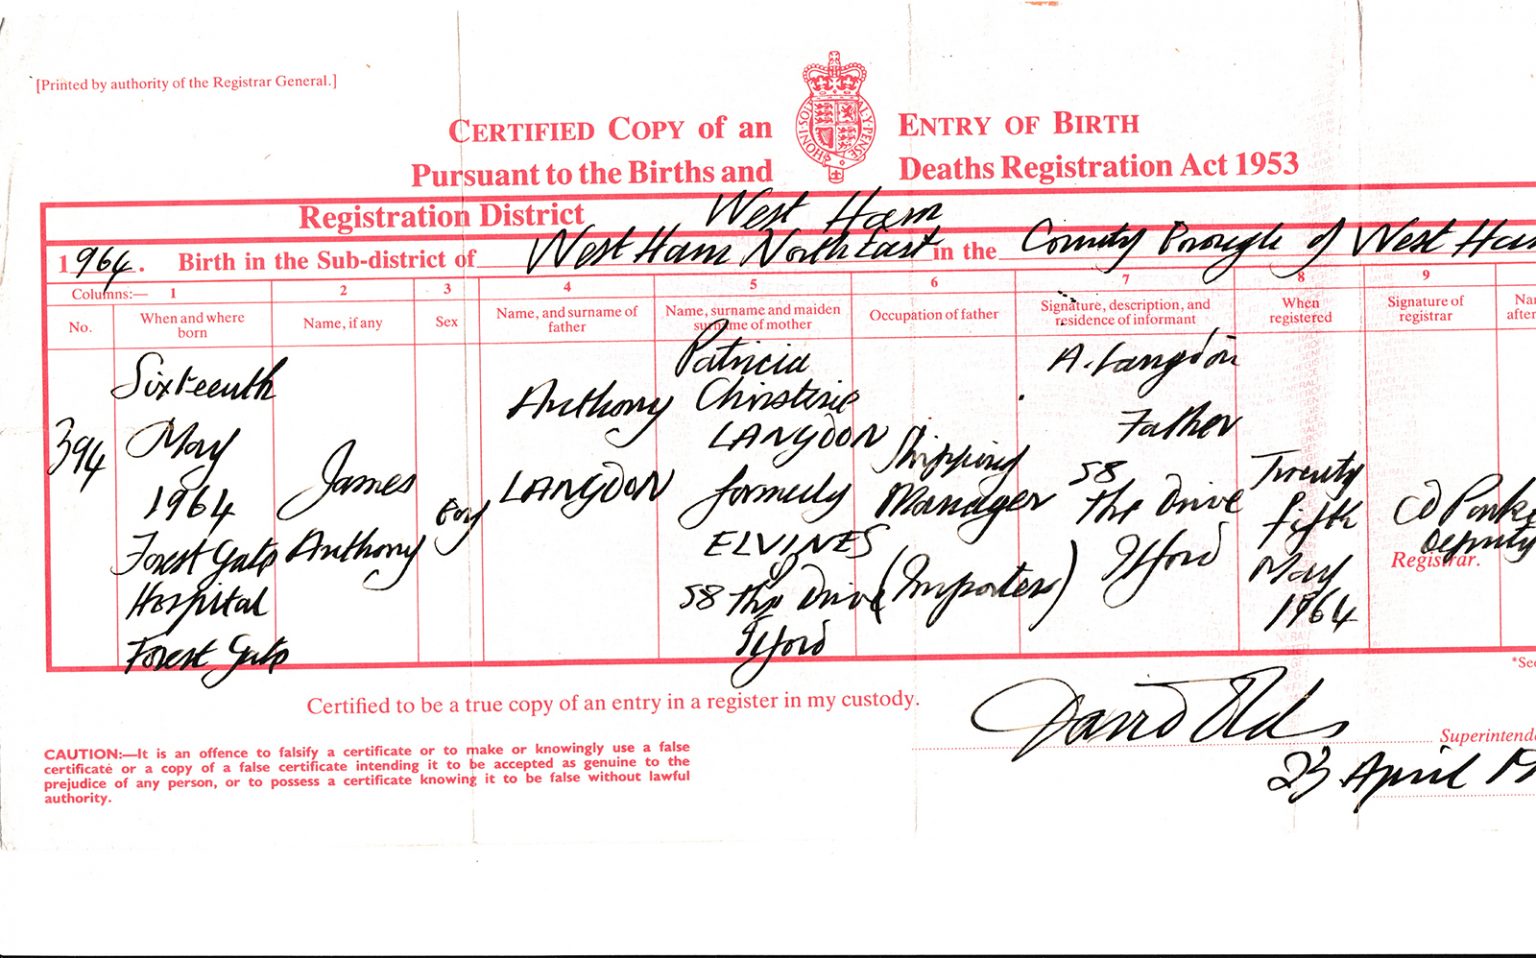 [Printed by authority of the Registrar General.]
CERTIFIED COPY of an ENTRY OF BIRTH
Pursuant to the Births and Deaths Registration Act 1953
HONI·SOIT
Registration District West Ham
1964. Birth in the Sub-district of West Ham North East in the County Borough of West Ham
Columns:— 1 2 3 4 5 6 7 8 9
No.
When and where
born
Name, if any
Sex
Name, and surname of
father
Name, surname and maiden
surname of mother
Occupation of father
Signature, description, and
residence of informant
When
registered
Signature of
registrar
Na
after
394
Sixteenth
May
1964
Forest Gate
Hospital
Forest Gate
James
Anthony
Boy
Anthony
LANGDON
Patricia
Christine
LANGDON
formerly
ELVINES
58 The Drive
Ilford
Shipping
Manager
(Importers)
A. Langdon
Father
58
The Drive
Ilford
Twenty
fifth
May
1964
CD
Deputy
Registrar.
*See
Certified to be a true copy of an entry in a register in my custody.
David
Superintende
CAUTION:—It is an offence to falsify a certificate or to make or knowingly use a false
certificate or a copy of a false certificate intending it to be accepted as genuine to the
prejudice of any person, or to possess a certificate knowing it to be false without lawful
authority.
23 April 19